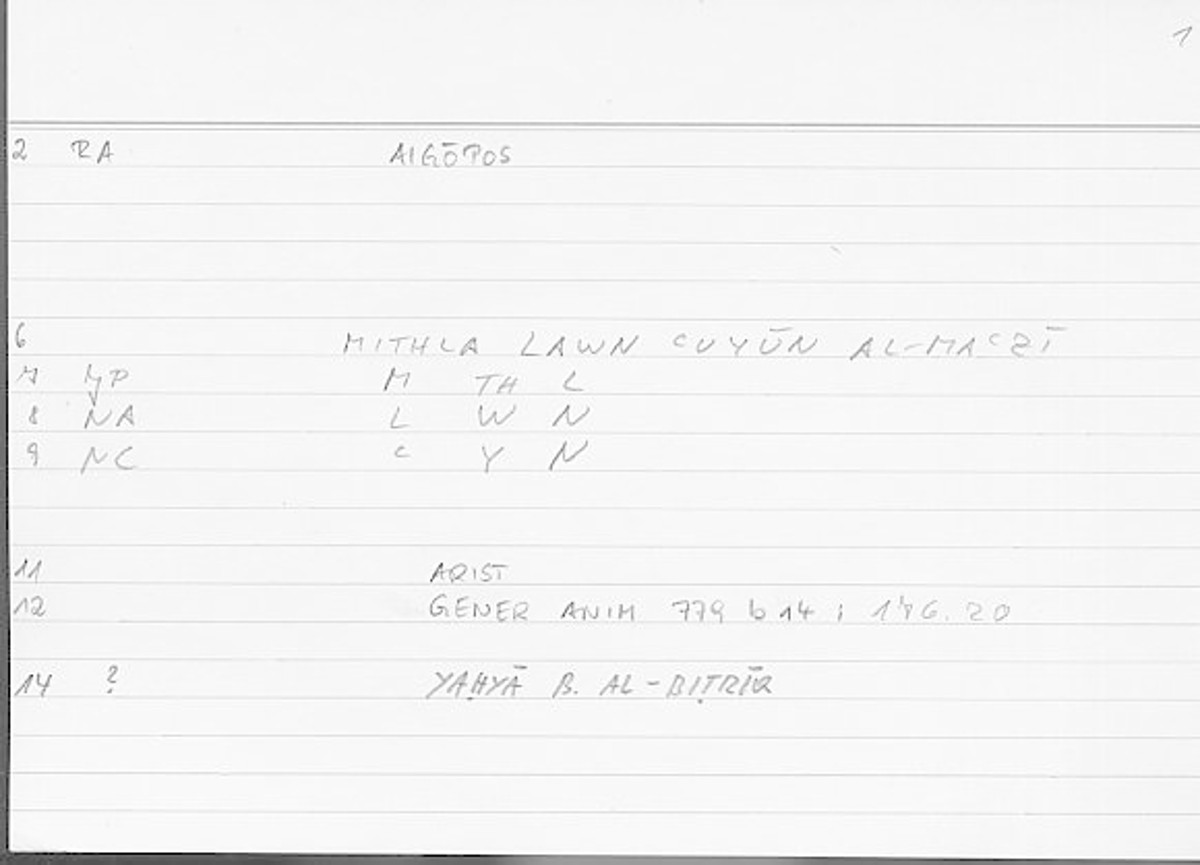 1
2 RA AIGŌPOS
6 MITHLA LAWN ᶜUYŪN AL-MAᶜZĪ
7 yP M TH L
8 NA L W N
9 NC ᶜ Y N
11 ARIST
12 GENER ANIM 779 b 14 ; 176.20
14 ? YAḤYĀ B. AL-BIṬRĪQ